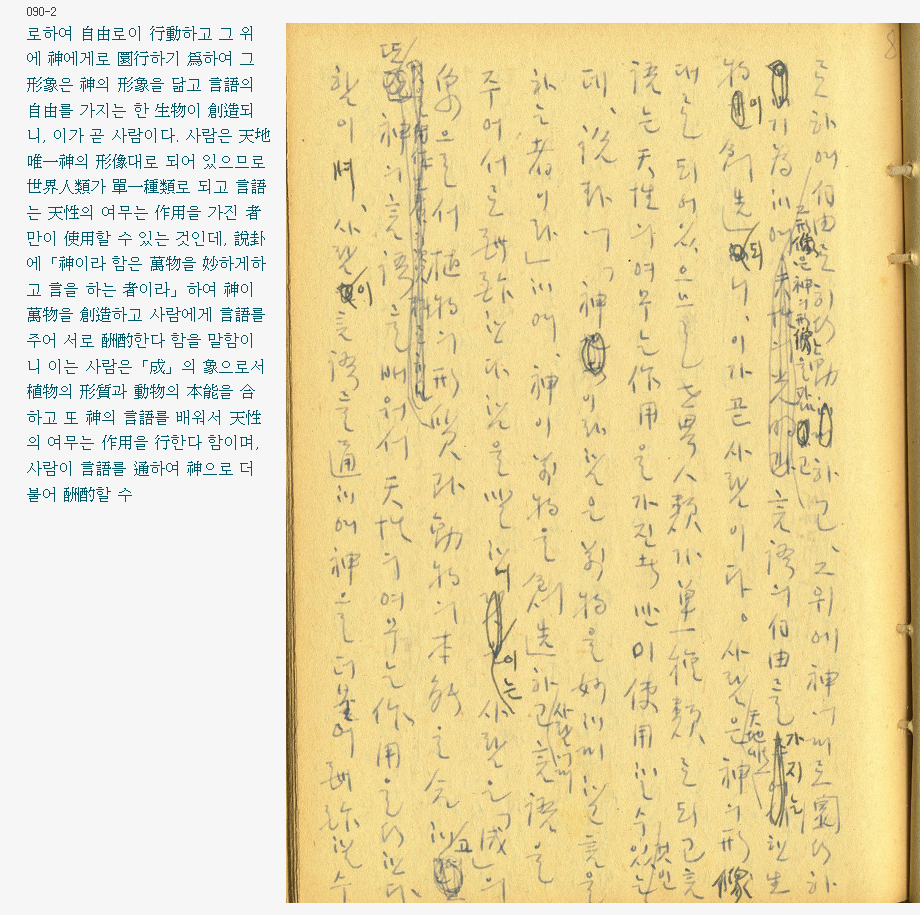 090-2
로하여 自由로이 行動하고 그 위
에 神에게로 圜行하기 爲하여 그
形象은 神의 形象을 닮고 言語의
自由를 가지는 한 生物이 創造되
니, 이가 곧 사람이다. 사람은 天地
唯一神의 形像대로 되어 있으므로
世界人類가 單一種類로 되고 言語
는 天性의 여무는 作用을 가진 者
만이 使用할 수 있는 것인데, 說卦
에「神이라 함은 萬物을 妙하게하
고 言을 하는 者이라」하여 神이
萬物을 創造하고 사람에게 言語를
주어 서로 酬酌한다 함을 말함이
니 이는 사람은「成」의 象으로서
植物의 形質과 動物의 本能을 合
하고 또 神의 言語를 배워서 天性
의 여무는 作用을 行한다 함이며,
사람이 言語를 通하여 神으로 더
불어 酬酌할 수
로하여 自由로이 行動하고, 그 위에 神에게로 圜行하
기 爲하여 그 形像은 神의 形像을 닮고 言語의 自由를 가지는 한 生
物이 創造되니, 이가 곧 사람이다。사람은 天地唯一神의 形像
대로 되어 있으므로 世界人類가 單一種類로 되고 言
語는 天性의 여무는 作用을 가진 者만이 使用할 수 있는 것인
데, 說卦에「神이라 함은 萬物을 妙하게 하고 言을
하는 者이라」하여 神이 萬物을 創造하고 사람에게 言語를
주어 서로 酬酌한다 함을 말함이니 이는 사람은「成」의
象으로서 植物의 形質과 動物의 本能을 合하고
또 神의 言語를 배워서 天性의 여무는 作用을 行한다
함이며, 사람이 言語를 通하여 神으로 더불어 酬酌할 수